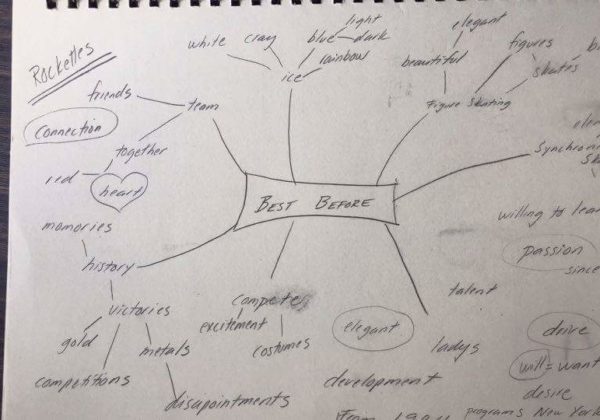 Rockettes
white
cray
blue
light
dark
rainbow
ice
elegant
beautiful
figures
skates
Figure Skating
friends
team
connection
together
red
heart
BEST BEFORE
Synchroni
willing to lear
passion
since
memories
history
victories
gold
metals
competitions
disapointments
compete
excitement
costumes
elegant
talent
ladys
development
drive
will = want
desire
programs New York